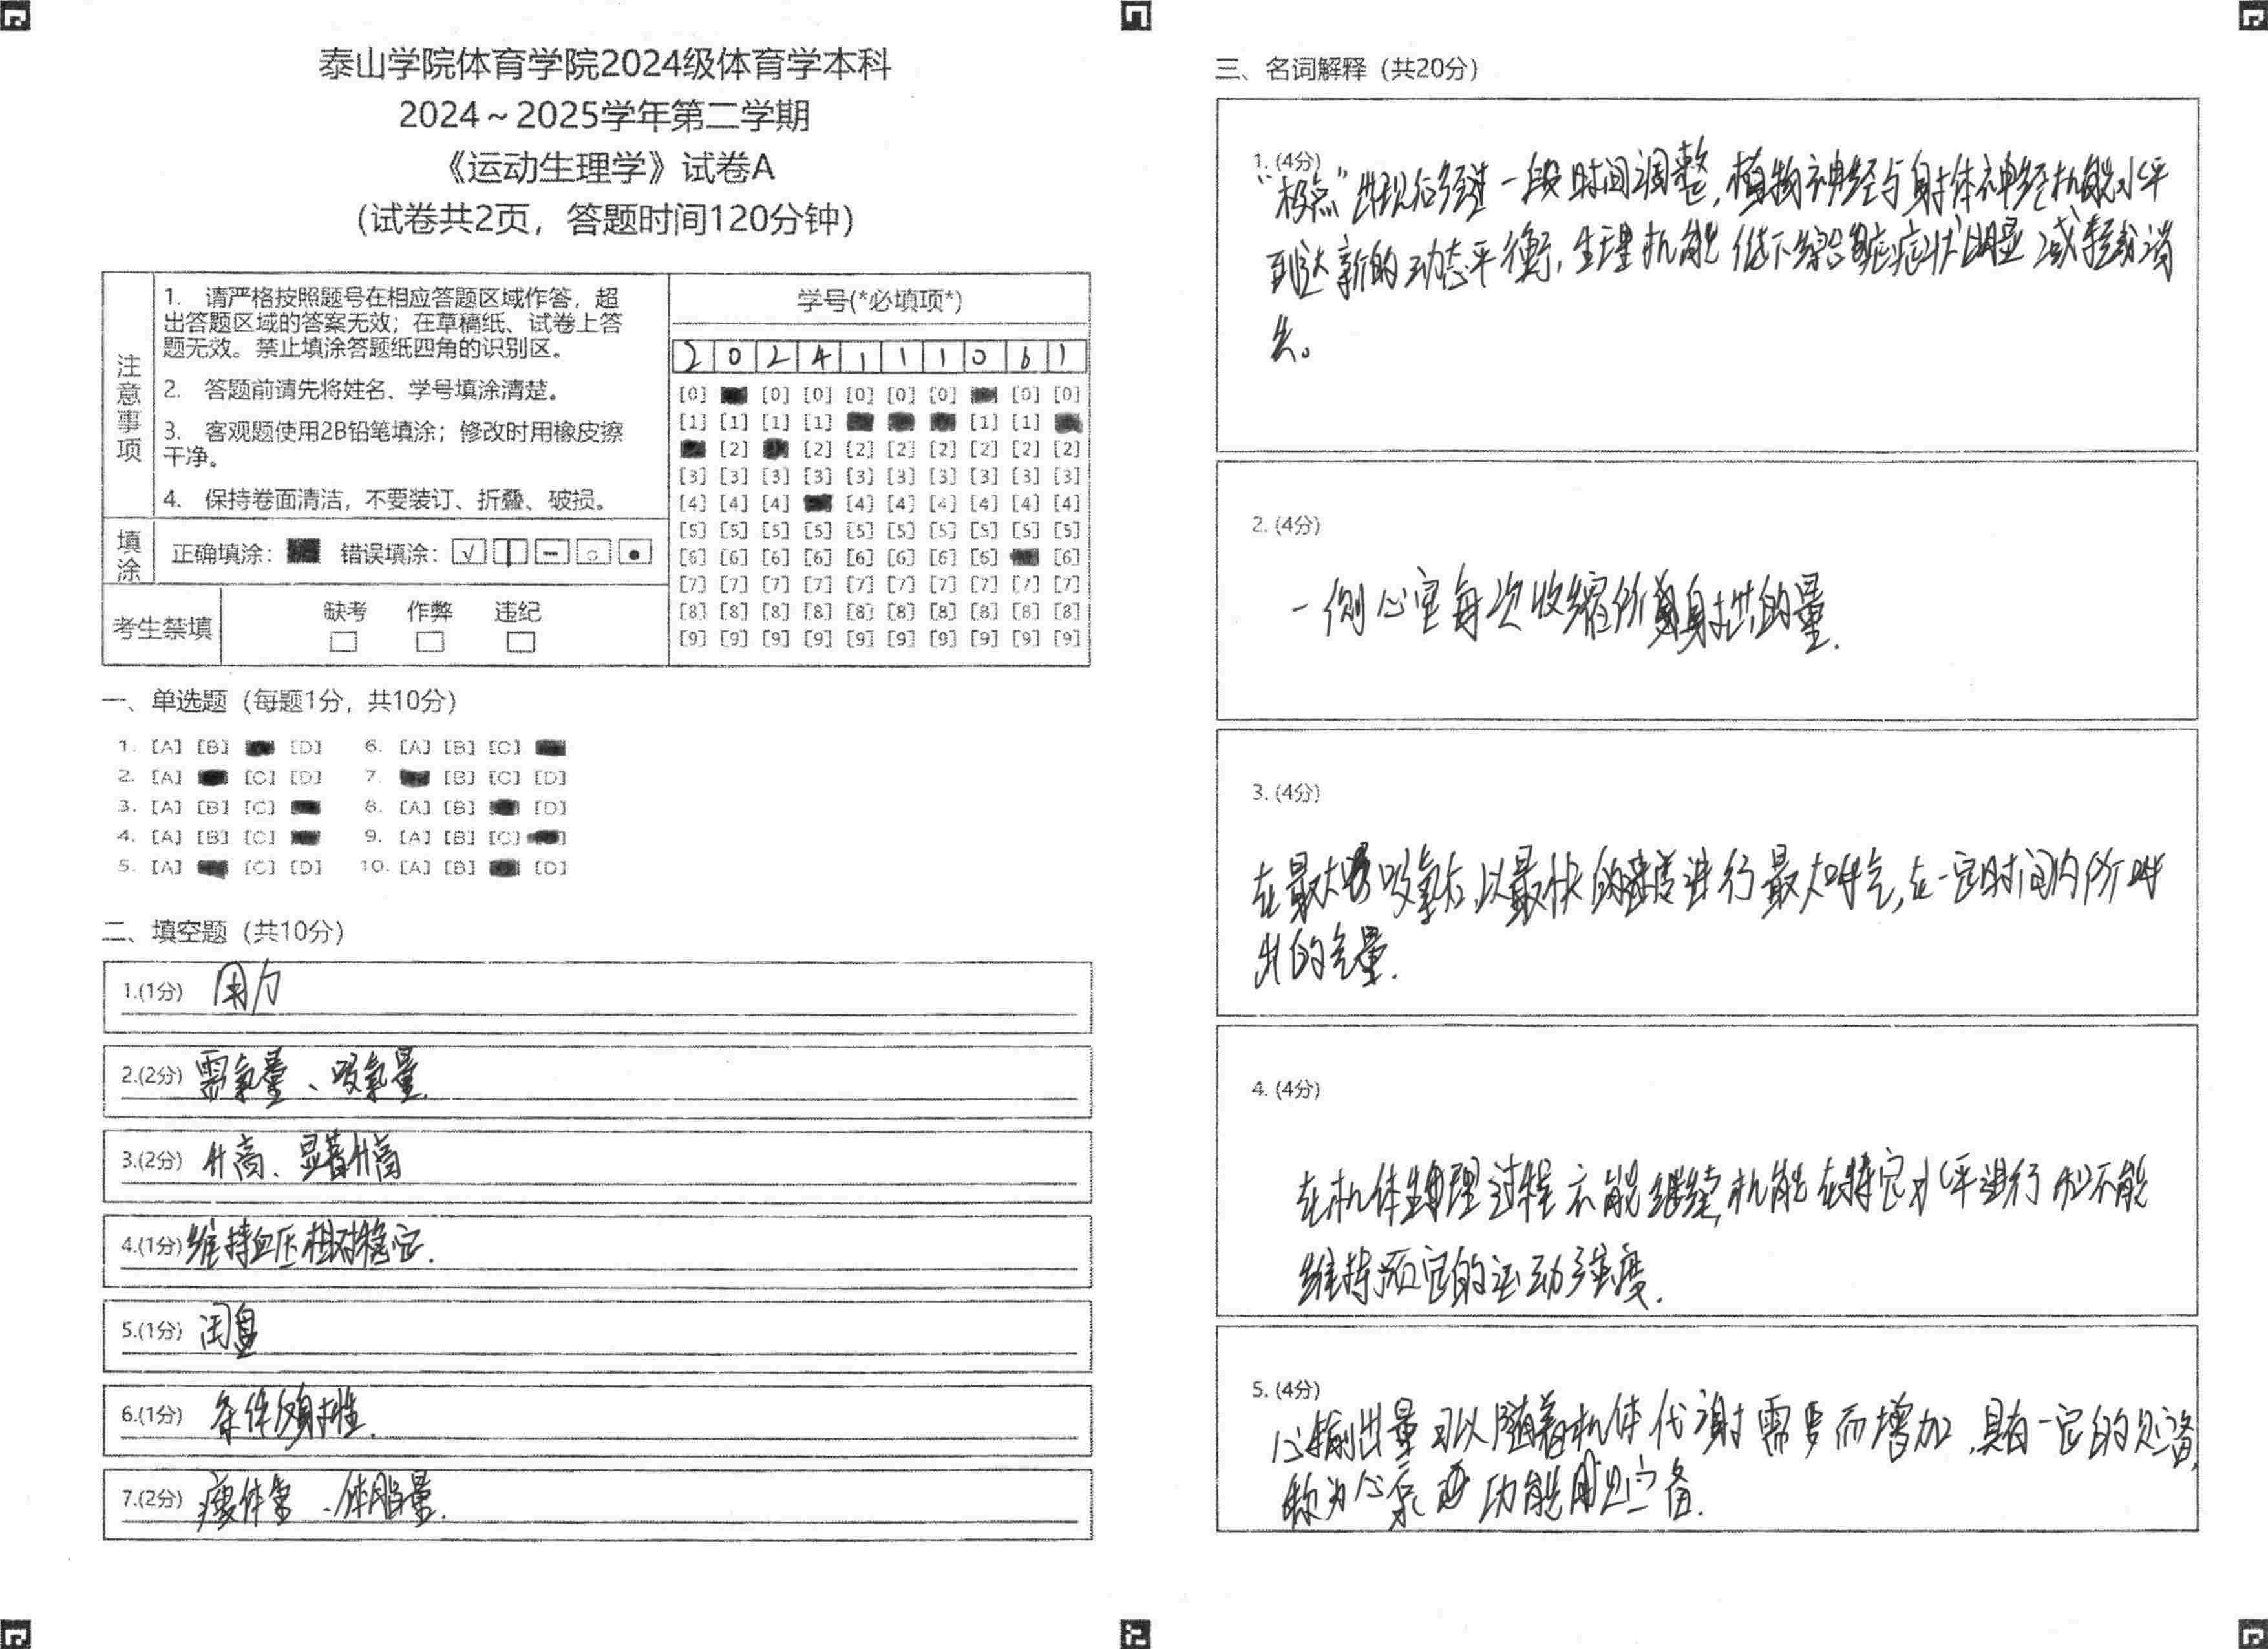 泰山学院体育学院2024级体育学本科
2024～2025学年第二学期
《运动生理学》试卷A
(试卷共2页，答题时间120分钟)
注意事项
1. 请严格按照题号在相应答题区域作答，超
出答题区域的答案无效；在草稿纸、试卷上答
题无效。禁止填涂答题纸四角的识别区。
2. 答题前请先将姓名、学号填涂清楚。
3. 客观题使用2B铅笔填涂；修改时用橡皮擦
干净。
4. 保持卷面清洁，不要装订、折叠、破损。
填涂
正确填涂： 错误填涂：
考生禁填
缺考 作弊 违纪
学号(*必填项*)
2 0 2 4 1 1 1 0 6 1
[0] [0] [0] [0] [0] [0] [0] [0]
[1] [1] [1] [1] [1] [1]
[2] [2] [2] [2] [2] [2] [2] [2]
[3] [3] [3] [3] [3] [3] [3] [3] [3] [3]
[4] [4] [4] [4] [4] [4] [4] [4] [4]
[5] [5] [5] [5] [5] [5] [5] [5] [5] [5]
[6] [6] [6] [6] [6] [6] [6] [6] [6]
[7] [7] [7] [7] [7] [7] [7] [7] [7] [7]
[8] [8] [8] [8] [8] [8] [8] [8] [8] [8]
[9] [9] [9] [9] [9] [9] [9] [9] [9] [9]
一、单选题（每题1分，共10分）
1. [A] [B] [D] 6. [A] [B] [C]
2. [A] [C] [D] 7. [B] [C] [D]
3. [A] [B] [C] 8. [A] [B] [D]
4. [A] [B] [C] 9. [A] [B] [C]
5. [A] [C] [D] 10. [A] [B] [D]
二、填空题（共10分）
1.(1分) 用力
2.(2分) 需氧量、吸氧量.
3.(2分) 升高、显著升高
4.(1分) 维持血压相对稳定.
5.(1分) 闰盘
6.(1分) 条件反射性.
7.(2分) 瘦体重、体脂量.
三、名词解释（共20分）
1. (4分)
“极点”出现后经过一段时间调整，植物神经与躯体神经机能水平
到达新的动态平衡，生理机能低下综合症症状明显减轻或消
失。
2. (4分)
一侧心室每次收缩所射出的量.
3. (4分)
在最大吸氧后,以最快的速度进行最大呼气,在一定时间内所呼
出的气量.
4. (4分)
在机体生理过程不能继续,机能在特定水平进行和/不能
维持预定的运动强度.
5. (4分)
心输出量可以随着机体代谢需要而增加,具有一定的贮备,
称为心泵功能贮备.